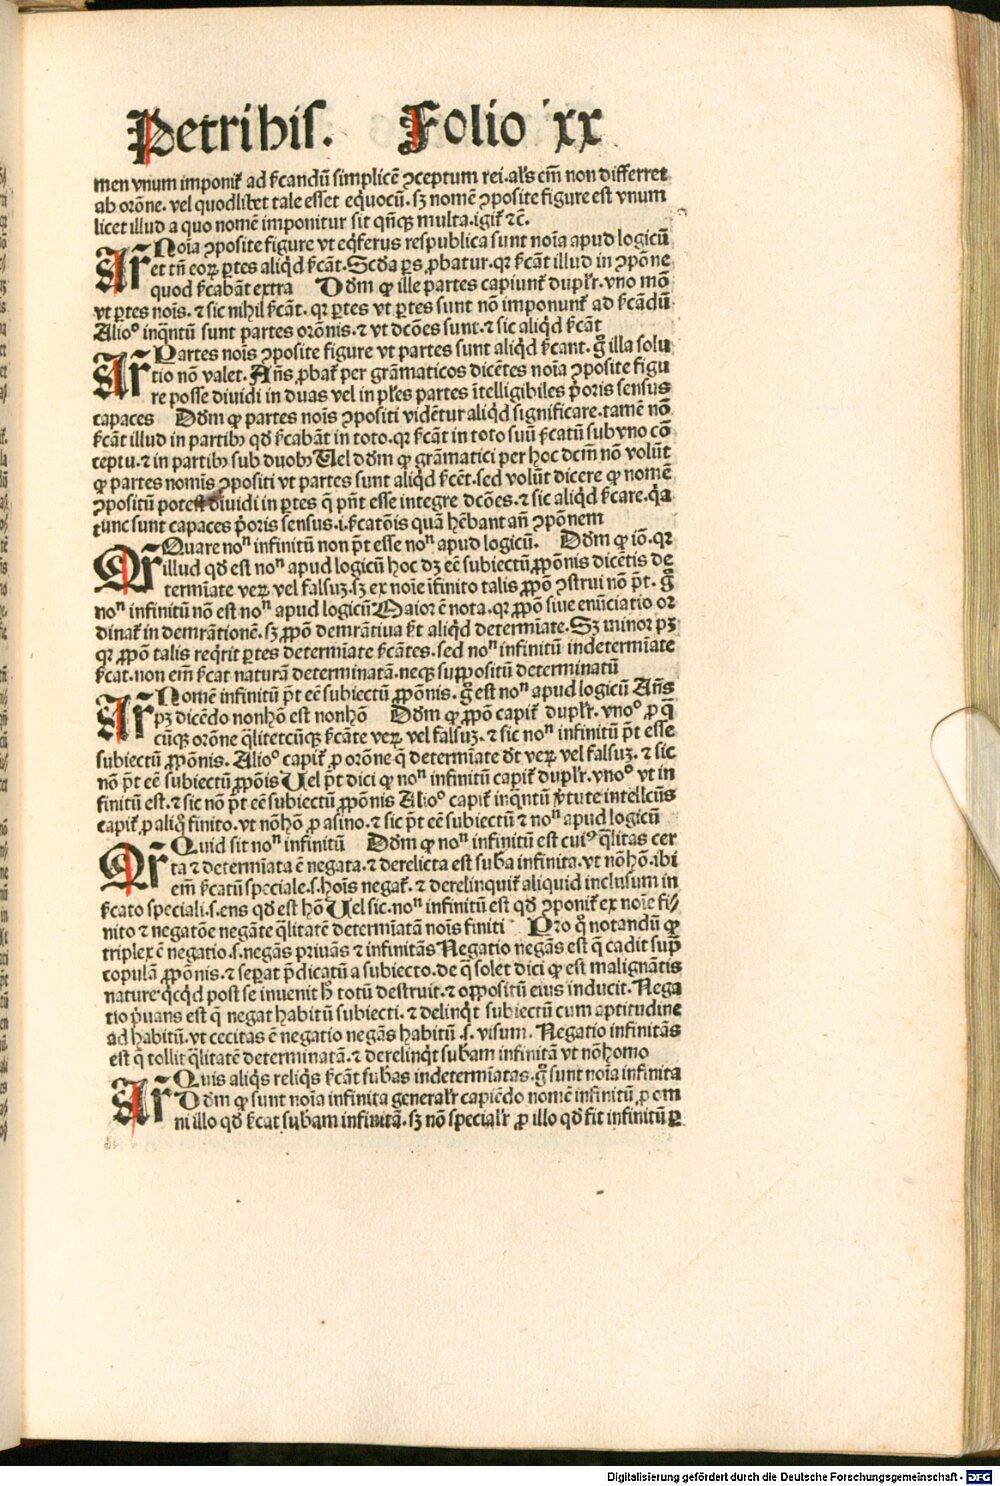 Petri his. Folio xx
men vnum imponiť ad ſ̌candū simplicē ꝯceptum rei. al's em̄ non differret
ab orōne. vel quodlibet tale esset equocū. sꝫ nomē ꝯposite figure est vnum
licet illud a quo nomē imponitur sit qn̄qꝫ multa. igiť ⁊c̄.
Ar̄ Noīa ꝯposite figure vt eq̇ferus respublica sunt noīa apud logicū
et tn̄ eoꝝ ꝑtes aliq̇d ſ̌cāt. Scďa ꝑs ꝓbatur. qꝛ ſ̌cāt illud in ꝯpōne
quod ſ̌cabāt extra Dďm ꝙ ille partes capiunť dupl'r. vno mō
vt ꝑtes nois. ⁊ sic nihil ſ̌cāt. qꝛ ꝑtes vt ꝑtes sunt nō imponunť ad ſ̌cādū
Alioº inq̄ntū sunt partes orōnis. ⁊ vt dcōes sunt. ⁊ sic aliq̇d ſ̌cāt
Ar̄ Partes nois ꝯposite figure vt partes sunt aliq̇d ſ̌cant. ḡ illa solu
tio nō valet. Añs ꝓbať per grāmaticos dicētes noīa ꝯposite figu
re posse diuidi in duas vel in pl'es partes ītelligibiles p̄oris sensus
capaces Dďm ꝙ partes nois ꝯpositi vidētur aliq̇d significare. tamē nō
ſ̌cāt illud in partibꝫ qď ſ̌cabāt in toto. qꝛ ſ̌cāt in toto suū ſ̌catū sub vno cō
ceptu. ⁊ in partibꝫ sub duobꝫ Uel dďm ꝙ grāmatici per hoc dcm̄ nō volūt
ꝙ partes nomis ꝯpositi vt partes sunt aliq̇d ſ̌cēt. sed volūt dicere ꝙ nomē
ꝯpositū potest diuidi in ꝑtes q̄ pn̄t esse integre dcōes. ⁊ sic aliq̇d ſ̌care. q̇a
tunc sunt capaces p̄oris sensus. i. ſ̌catōis quā hēbant añ ꝯpōnem
Qr̄ Quare noⁿ infinitū non p̄t esse noⁿ apud logicū. Dďm ꝙ iō. qꝛ
illud qď est noⁿ apud logicū hoc dꝫ eē subiectū ꝓpōnis dicētis de
termīate veꝝ vel falsuꝫ. sꝫ ex noīe īfinito talis ꝓpō ꝯstrui nō p̄t. ḡ
noⁿ infinitū nō est noⁿ apud logicū Maior ē nota. qꝛ ꝓpō siue enūciatio or
dinať in demrātionē. sꝫ ꝓpō demrātiua ſ̌t aliq̇d determīate. Sꝫ minor pꝫ
qꝛ ꝓpō talis req̇rit ꝑtes determīate ſ̌cātes. sed noⁿ infinitū indetermīate
ſ̌cat. non em̄ ſ̌cat naturā determinatā. neqꝫ suppositū determinatū
Ar̄ Nomē infinitū p̄t eē subiectū ꝓpōnis. ḡ est noⁿ apud logicū Añs
pꝫ dicēdo nonhō est nonhō Dďm ꝙ ꝓpō capiť dupl'r. vnoº ꝓ q̄
cūqꝫ orōne q̄litetcūqꝫ ſ̌cāte veꝝ vel falsuꝫ. ⁊ sic noⁿ infinitū p̄t esse
subiectū ꝓpōnis. Alioº capiť ꝓ orōne q̄ determīate ďt veꝝ vel falsuꝫ. ⁊ sic
nō p̄t eē subiectū ꝓpōis Uel p̄t dici ꝙ noⁿ infinitū capiť dupl'r. vnoº vt in
finitū est. ⁊ sic nō p̄t eē subiectū ꝓpōnis Alioº capiť inq̄ntū ṽtute intellcūs
capiť ꝓ aliq̇ finito. vt nōhō ꝓ asino. ⁊ sic p̄t eē subiectū ⁊ noⁿ apud logicū
Qr̄ Quid sit noⁿ infinitū Dďm ꝙ noⁿ infinitū est cuiꝰ q̄litas cer
ta ⁊ determīata ē negata. ⁊ derelicta est sub̄a infinita. vt nōhō. ibi
em̄ ſ̌catū speciale. s. hoīs negať. ⁊ derelinquiť aliquid inclusum in
ſ̌cato speciali. s. ens qď est hō Uel sic. noⁿ infinitū est qď ꝯponiť ex noīe fi⸗
nito ⁊ negatōe negāte q̄litatē determīatā nois finiti Pro q̇ notandū ꝙ
triplex ē negatio. s. negās priuās ⁊ infinitās Negatio negās est q̄ cadit sup̄
copulā ꝓpōnis. ⁊ seꝑat p̄dicatū a subiecto. de q̄ solet dici ꝙ est malignātis
nature. q̇cq̇d post se inuenit h̄ totū destruit. ⁊ oppositū eius inducit. Nega
tio p̄uans est q̄ negat habitū subiecti. ⁊ delinq̇t subiectū cum aptitudine
ad habitū. vt cecitas ē negatio negās habitū .s. visum. Negatio infinitās
est q̄ tollit q̄litatē determinatā. ⁊ derelinq̇t sub̄am infinitā vt nōhomo
Ar̄ Quis aliq̇s reliq̇s ſ̌cāt sub̄as indetermīatas. ḡ sunt noīa infinita
Dďm ꝙ sunt noīa infinita general'r capiēdo nomē infinitū ꝓ om
ni illo qď ſ̌cat sub̄am infinitā. sꝫ nō special'r ꝓ illo qď fit infinitū ꝑ
Digitalisierung gefördert durch die Deutsche Forschungsgemeinschaft - DFG